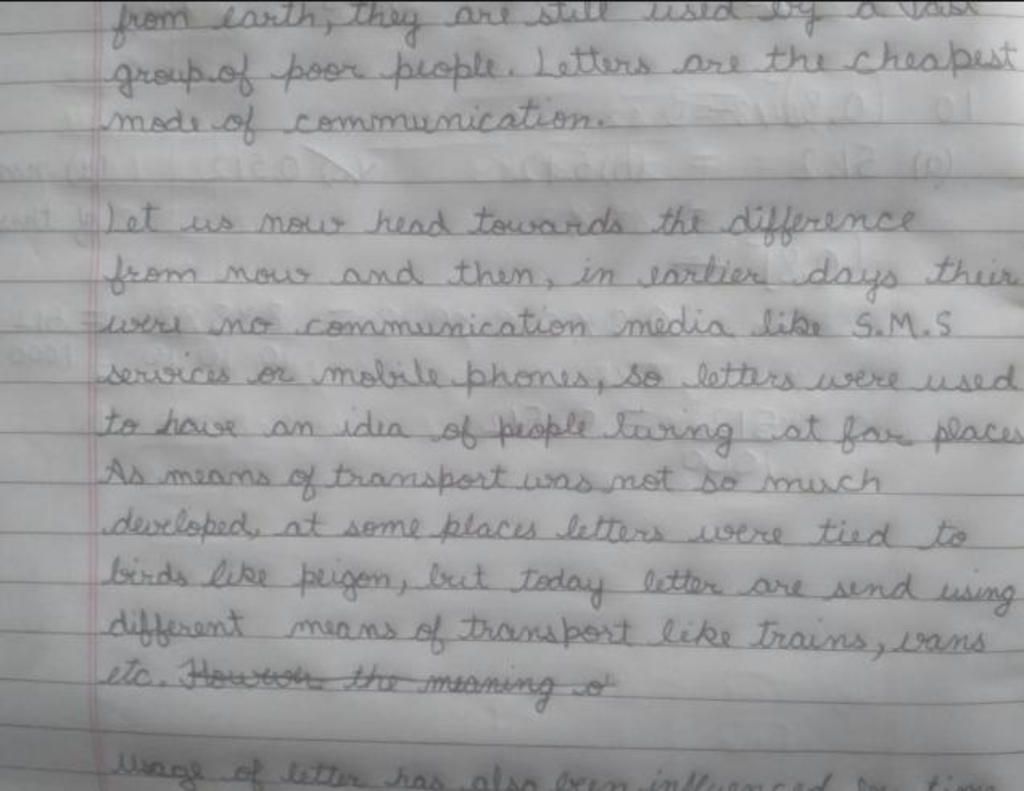 from earth, they are still used by a vast
group of poor people. Letters are the cheapest
mode of communication.
Let us now head towards the difference
from now and then, in earlier days their
were no communication media like S.M.S
services or mobile phones, so letters were used
to have an idea of people at far places
As means of transport was not so much
developed, at some places letters were tied to
birds like peigon, but today letter are send using
different means of transport like trains, vans
etc. However the meaning o
Usage of letter has also been influenced by time